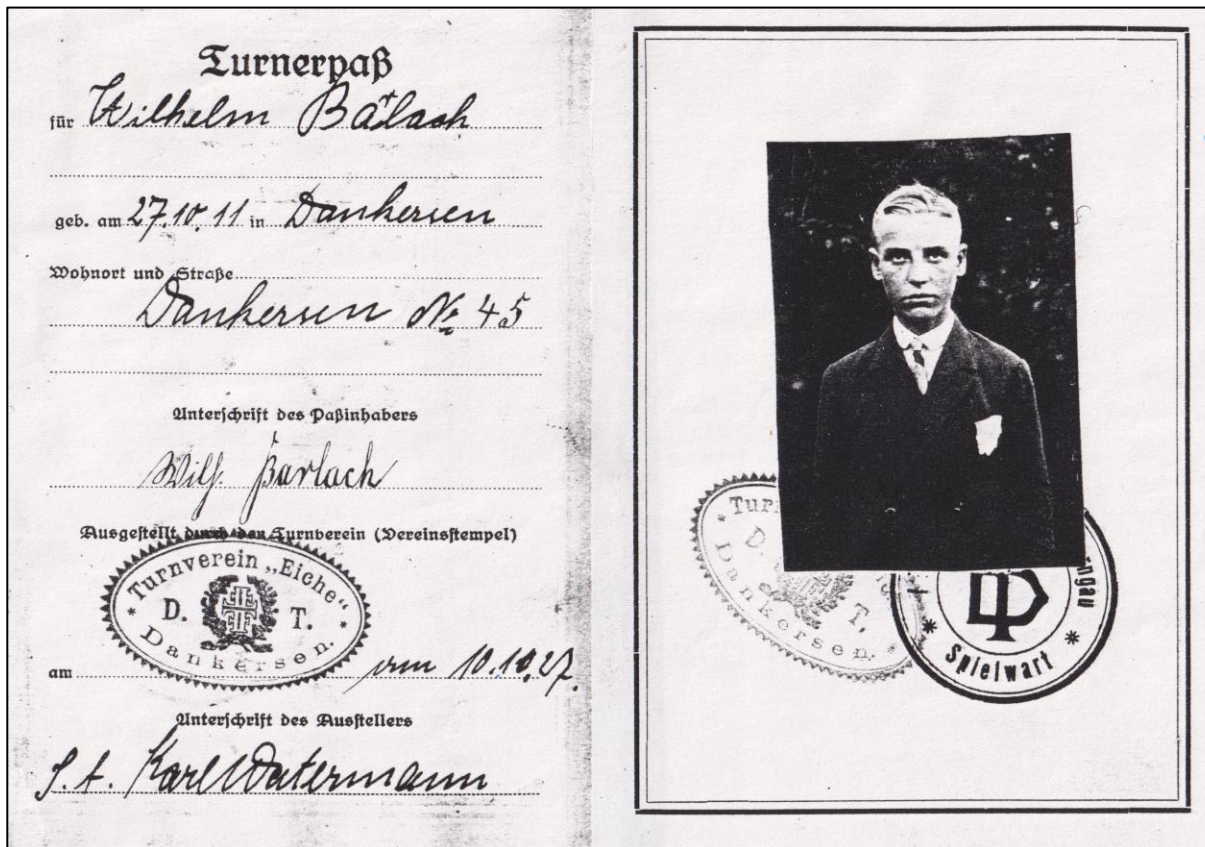 Turnerpaß
für Wilhelm Barlach
geb. am 27.10.11 in Dankersen
Wohnort und Straße
Dankersen № 45
Unterschrift des Paßinhabers
Wilh. Barlach
Ausgestellt durch den Turnverein (Vereinsstempel)
Turnverein „Eiche“
D. T.
Dankersen.
am 10.10.27.
Unterschrift des Ausstellers
Karl Watermann
Tur
D. T.
Dankersen.
ngau
Spielwart